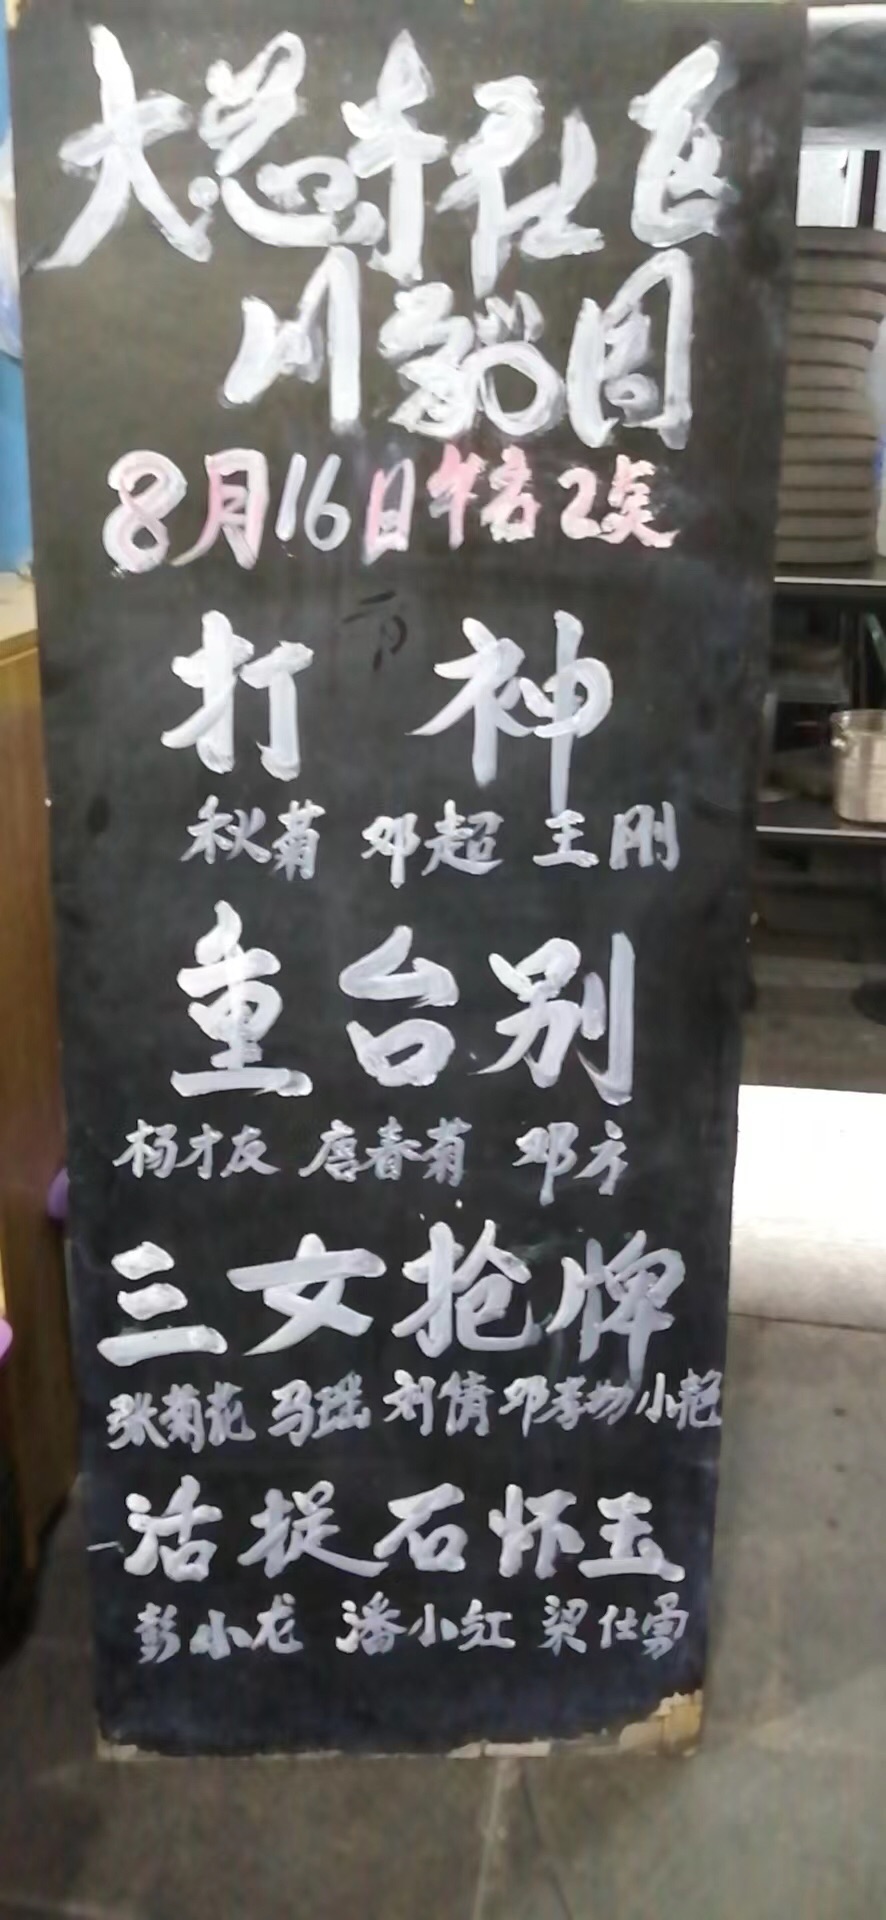 大慈寺社区
川剧团
8月16日午后2点
打神
秋菊 邓超 王刚
重台别
杨才友 唐春菊 邓方
三女抢牌
张菊花 马瑞 刘倩 邓孝 小艳
活捉石怀玉
彭小龙 潘小红 梁仕勇